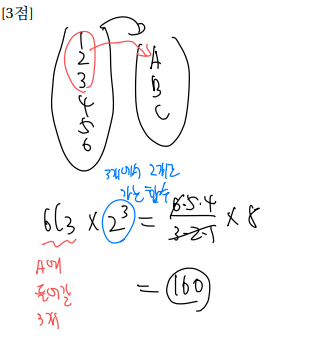 [3점]
1
2 A
3 B
4 C
5
6
3개에서 2개로
가는 함수
6C3 × 2^3 = 6·5·4/3·2·1 × 8
A에
들어갈
3개
= 160